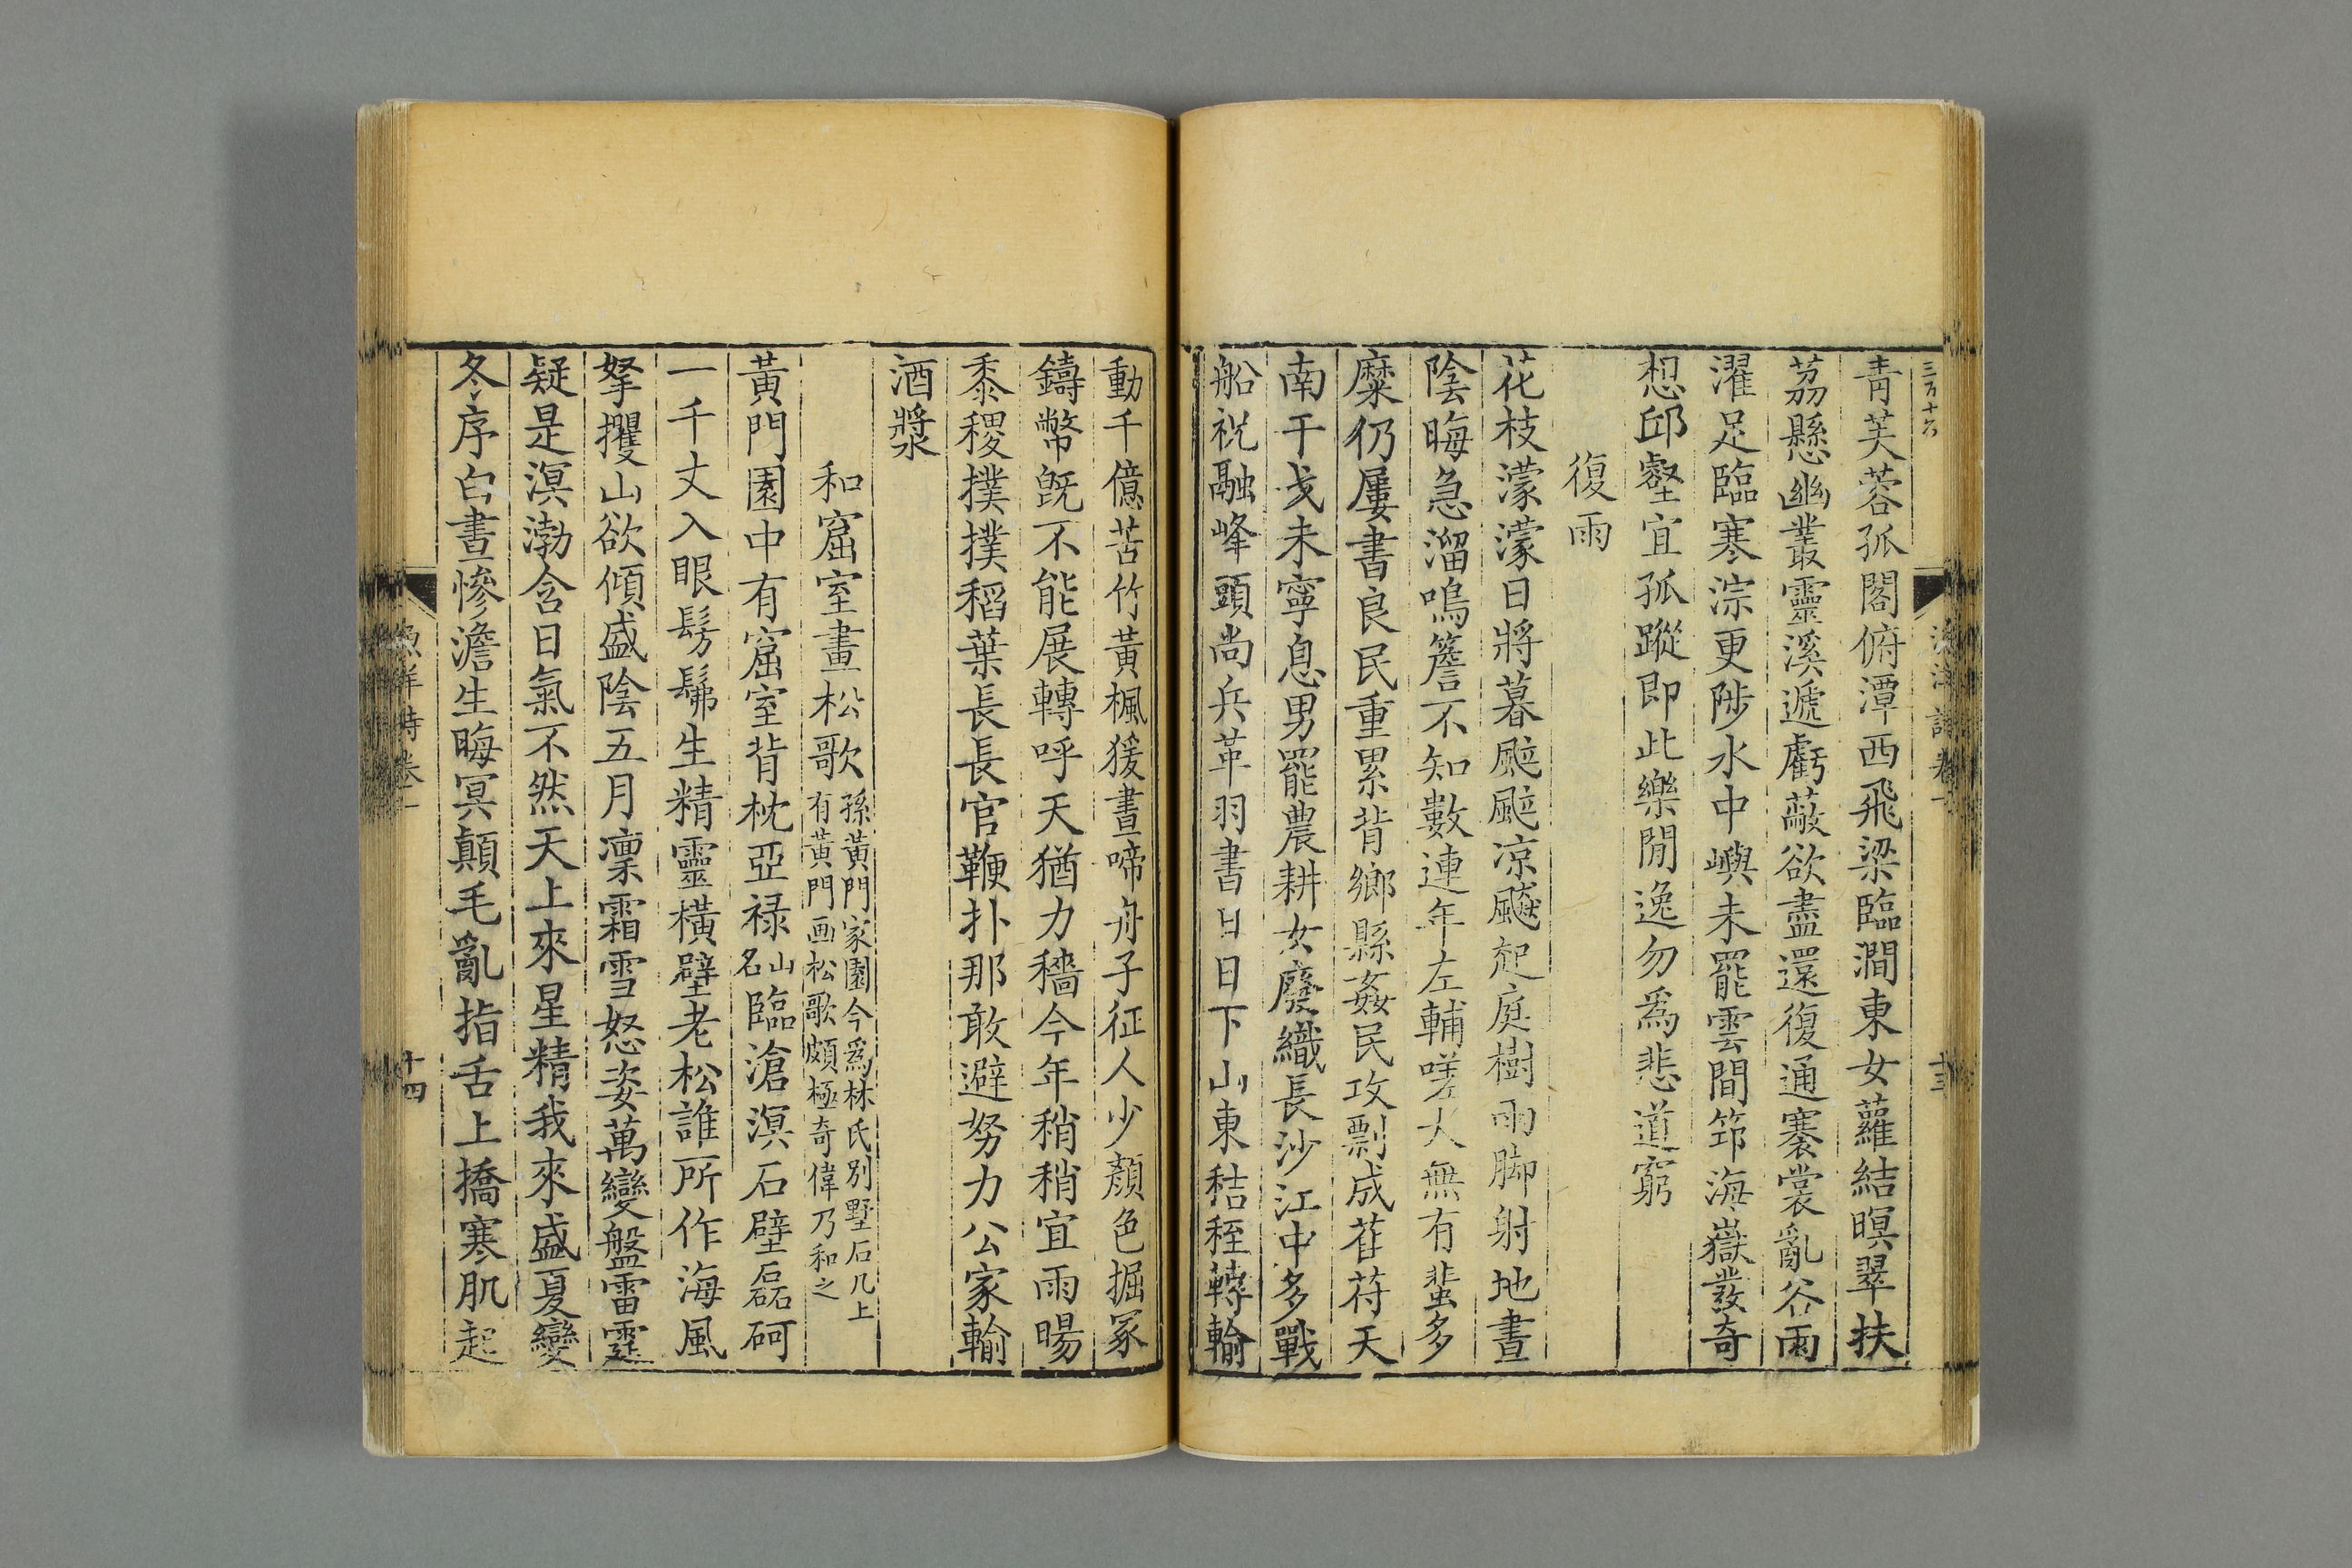 三百十六
青芙蓉孤閣俯潭西飛梁臨澗東女蘿結暝翠扶
茘懸幽叢靈溪遞虧蔽欲盡還復通褰裳亂谷雨
濯足臨寒淙更陟水中嶼未罷雲間笻海嶽發奇
想邱壑宜孤蹤即此樂閒逸勿爲悲道窮
復雨
花枝濛濛日將暮颭颭凉飈起庭樹雨脚射地晝
陰晦急溜鳴簷不知數連年左輔嗟人無有蜚多
麋仍屢書良民重累背鄉縣姦民攻剽成萑苻天
南干戈未寧息男罷農耕女廢織長沙江中多戰
船祝融峰頭尚兵革羽書日日下山東秸秷轉輸
動千億苦竹黃楓猨晝啼舟子征人少顏色掘冢
鑄幣旣不能展轉呼天猶力穡今年稍稍宜雨暘
黍稷撲撲稻葉長長官鞭扑那敢避努力公家輸
酒漿
和窟室畫松歌
孫黃門家園今爲林氏別墅石几上
有黃門画松歌頗極奇偉乃和之
黃門園中有窟室背枕亞祿
山名
臨滄溟石壁磊砢
一千丈入眼髣髴生精靈橫壁老松誰所作海風
拏攫山欲傾盛陰五月凛霜雪怒姿萬變盤雷霆
疑是溟渤含日氣不然天上來星精我來盛夏變
冬序白晝慘澹生晦冥顚毛亂指舌上撟寒肌起
漁洋詩卷一
十四